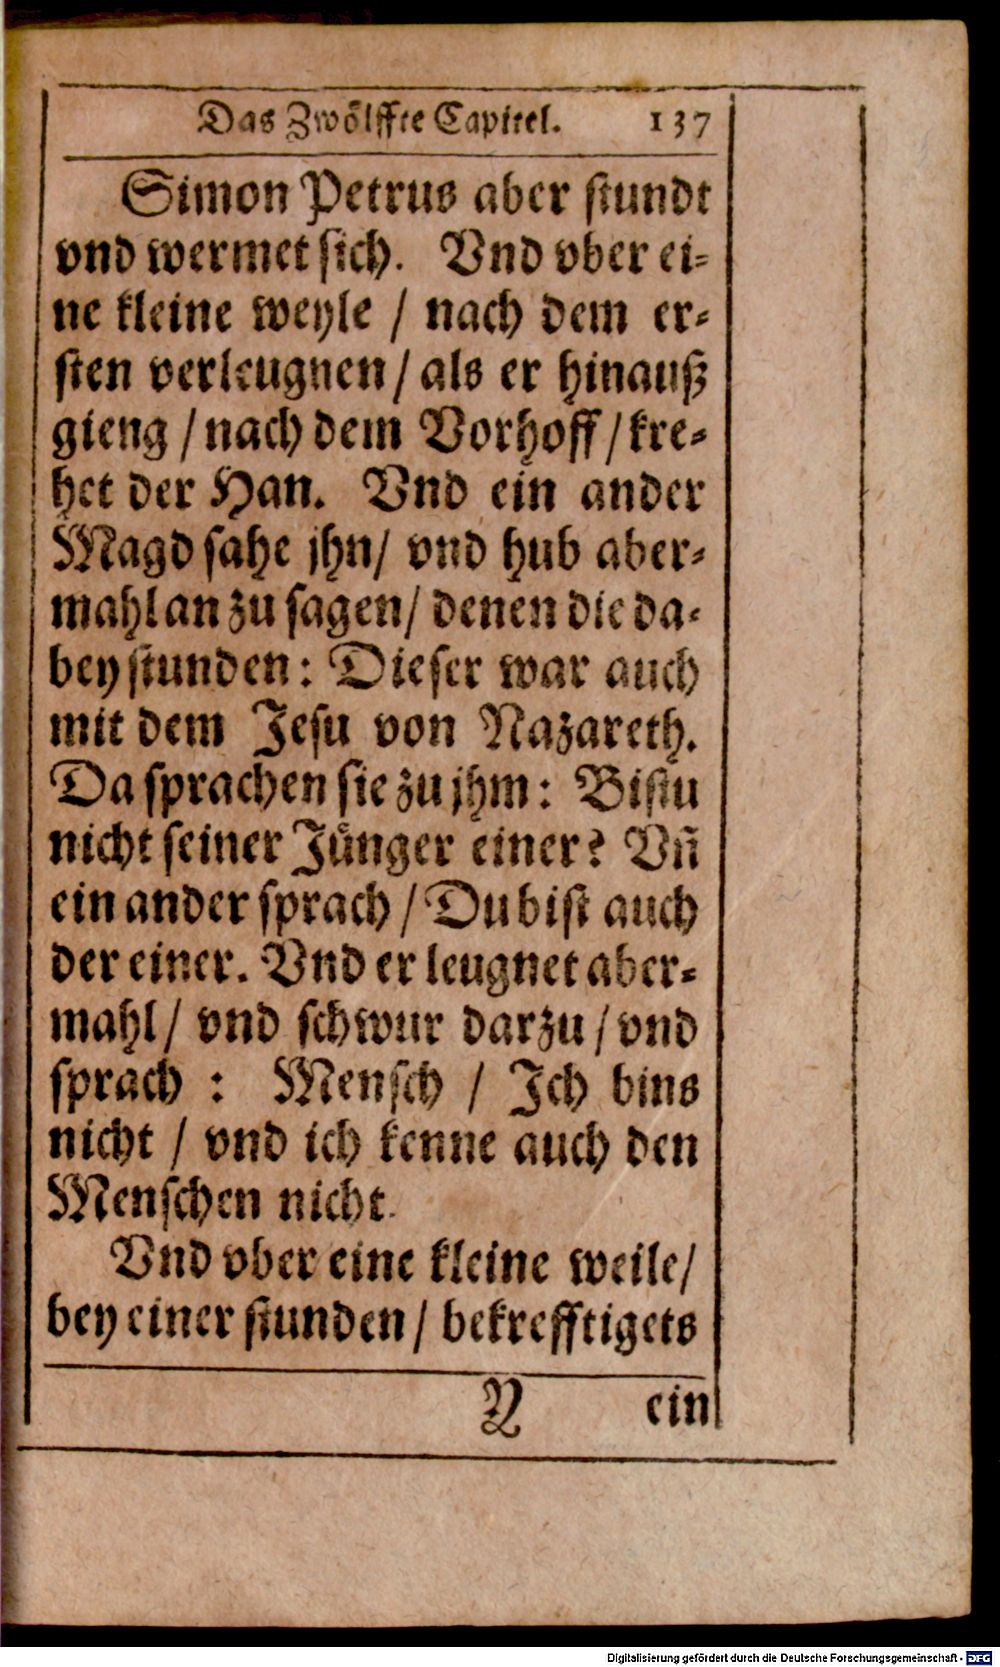 Das Zwölffte Capitel. 137
Simon Petrus aber stundt
vnd wermet sich. Vnd vber ei-
ne kleine weyle / nach dem er-
sten verleugnen / als er hinauß
gieng / nach dem Vorhoff / kre-
het der Han. Vnd ein ander
Magd sahe jhn / vnd hub aber-
mahl an zu sagen / denen die da-
bey stunden: Dieser war auch
mit dem Jesu von Nazareth.
Da sprachen sie zu jhm: Bistu
nicht seiner Jünger einer? Vñ
ein ander sprach / Du bist auch
der einer. Vnd er leugnet aber-
mahl / vnd schwur darzu / vnd
sprach : Mensch / Ich bins
nicht / vnd ich kenne auch den
Menschen nicht.
Vnd vber eine kleine weile /
bey einer stunden / bekrefftigets
Y ein
Digitalisierung gefördert durch die Deutsche Forschungsgemeinschaft - DFG